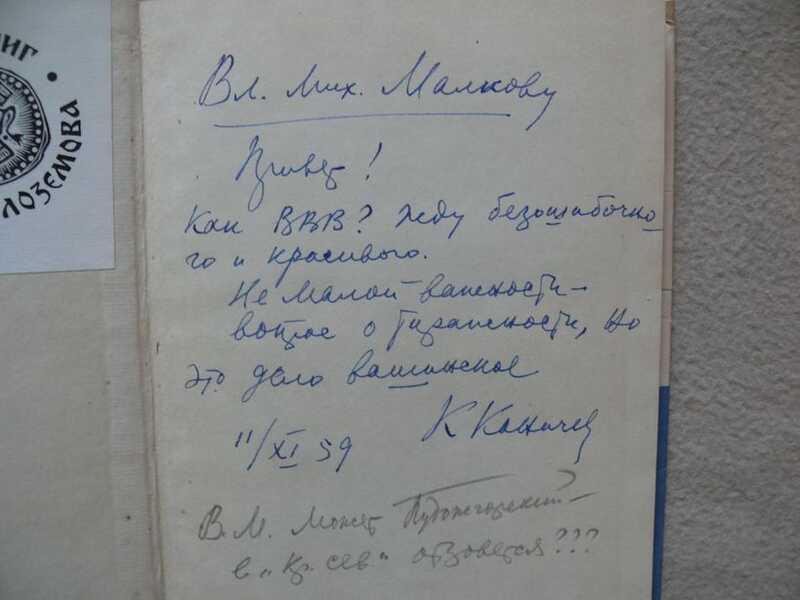 ИГ
ЛОЗЕМОВА
Вл. Мих. Малкову
Привет!
Как ВВВ? Жду безошибочно
го и красивого.
Не малой важности –
вопрос о тиражности, но
это дело вашинское
К Коничев
11/XI 59
В.М. Может Пудожгорский –
в „Кр. сев." отзовется???